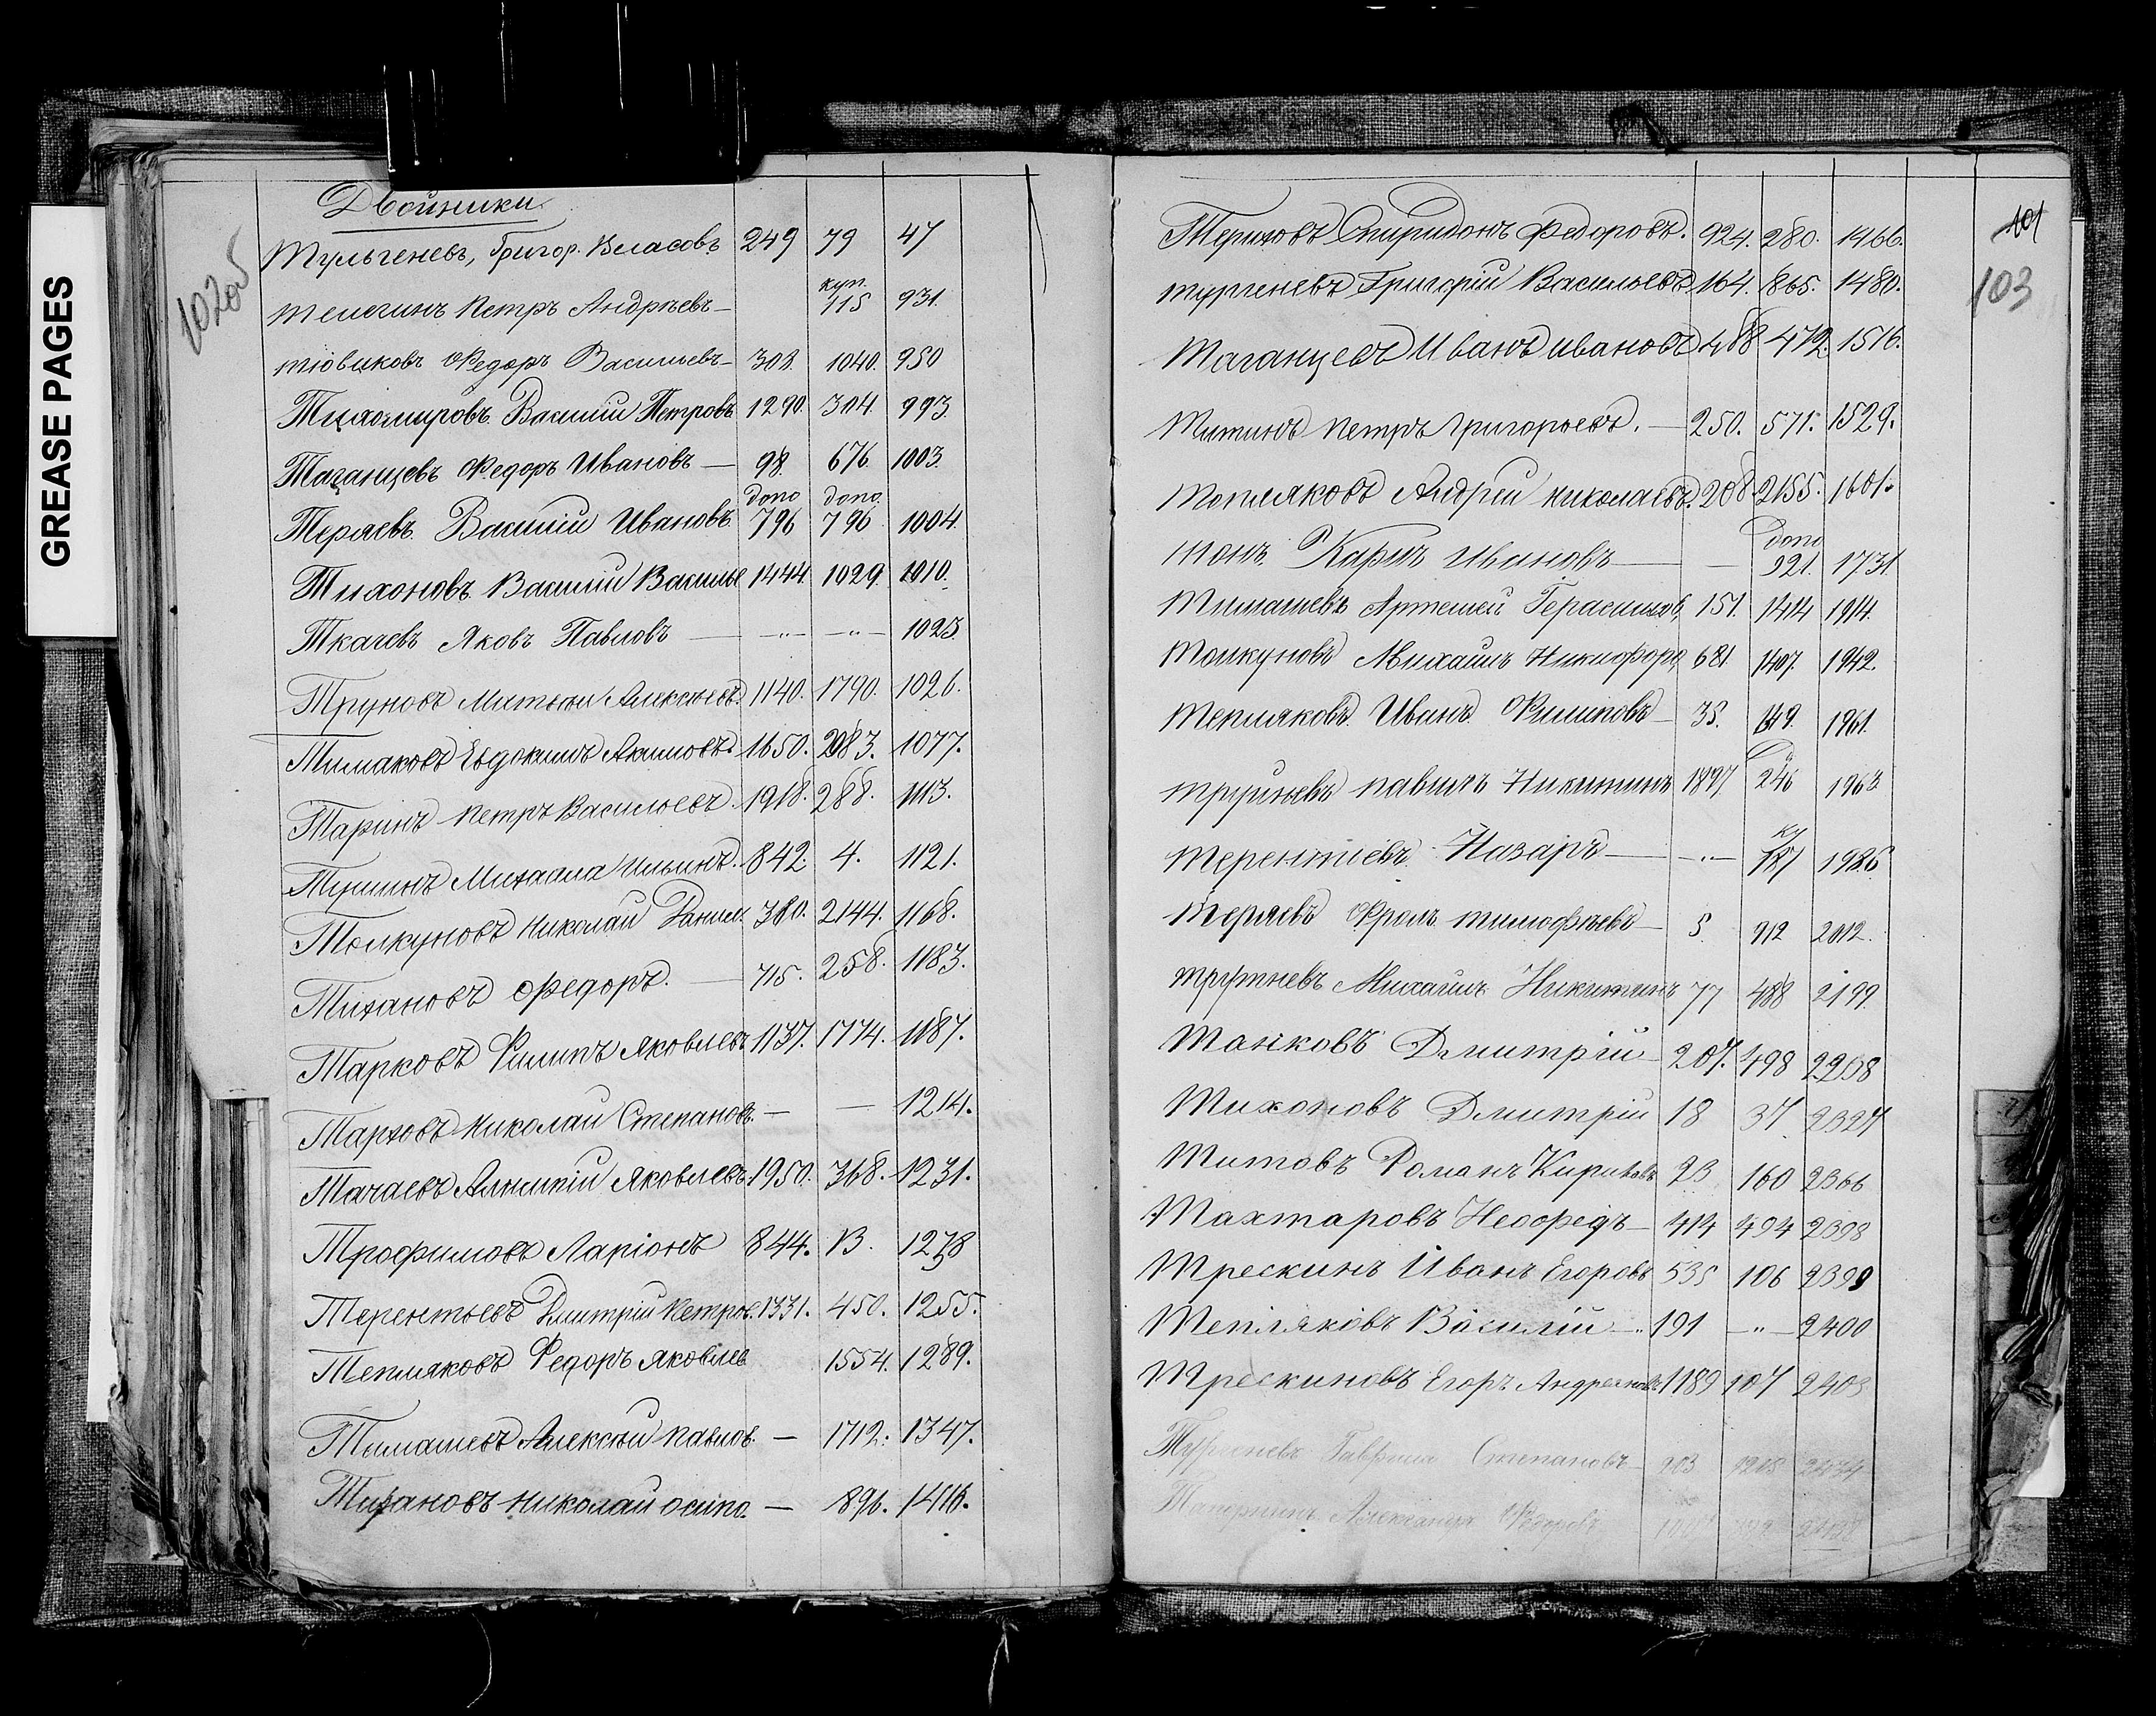 GREASE PAGES
102об
Двойники
Тульгеневъ, Григор. Власовъ 249 79 47
Телегинъ Петръ Андрѣевъ — куп. 115 931.
Тювиковъ Федоръ Васильевъ — 308. 1040. 950
Тихомировъ Василий Петровъ 1290. 304. 993.
Таганцевъ Федоръ Ивановъ — 98. 676. 1003.
Теряевъ Василій Ивановъ допо 796 допо. 796 1004.
Тихоновъ Василій Василье 1444. 1029. 1010.
Ткачевъ Яковъ Павловъ — „ — „ — 1023.
Труновъ Матвѣи Алексѣевъ. 1140. 1790. 1026.
Тимаковъ Евдокимъ Акимовъ. 1650. 2083. 1077.
Таринъ Петръ Васильевъ. 1918. 288. 1113.
Тушинъ Михаила Ильинъ. 842. 4. 1121.
Толкуновъ Николай Данил 380. 2144. 1168.
Тихановъ Федоръ. — 715. 258. 1183.
Тарковъ Филипъ Яковлевъ 1137. 1774. 1187.
Тарховъ Николаи Степановъ. — — 1214.
Тачаевъ Яковлевъ. 1950. 368. 1231.
Трофимовъ Ларіонъ 844. 13. 1238
Терентьевъ Дмитрій Петров. 1331. 450. 1255.
Тепляковъ Федоръ Яковлев 1554. 1289.
Тимашевъ Алексѣй Павлов. — 1712. 1347.
Тихановъ Николай Осипо. — 896. 1416.
101
103
Териховъ Спиридонъ Федоровъ. 924. 280. 1466.
Тургеневъ Григорій Васильевъ 164. 865. 1480.
Таганцевъ Иванъ Ивановъ 488 472. 1516.
Титинъ Петръ Григорьевъ. — 250. 571. 1529.
Топляковъ Андрей Николаевъ. 208. 2155. 1601.
Тонъ Карпъ Ивановъ — — допо 921. 1731.
Тимашевъ Артемей Герасимов, 151. 1414 1914.
Толкуновъ Михаилъ Никифоро, 681. 1407. 1942.
Тепляковъ Иванъ Филиповъ — 35. 149. 1961.
Павилъ Никитинъ 1897 246 1963
Терентіевъ Назаръ — — „ — ку 787 1986
Теряевъ Фролъ Тимофѣевъ — 5. 912 2012.
Трутневъ Михаилъ Никитинъ 77 488 2199.
Танковъ Дмитрій — 207. 498 2208
Тихоновъ Дмитрій 18 37. 2327
Титовъ Романъ Кириковъ 23 160 2366
Тахтаровъ — 414 494 2398
Трескинъ Иванъ Егоровъ 535 106 2399
Тепляковъ Василій — „ 191 — „ — 2400
Трескиновъ Егоръ Андреяновъ 1189 107 2403
Гаврила Степановъ — 203
Александръ Федоровъ